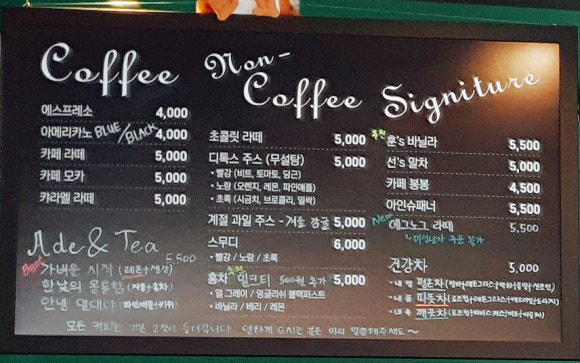 Coffee
에스프레소 4,000
아메리카노 BLUE/BLACK 4,000
카페 라떼 5,000
카페 모카 5,000
카라멜 라떼 5,000
Ade & Tea 5,500
Best 가벼운 시작 (레몬+생강)
한낮의 몽롱함
안녕 열대야 (파인애플+키위)
모든 커피는 기본 2샷이 들어갑니다 연하게 드시는 분은 미리 말씀해주세요~
Non-Coffee
초콜릿 라떼 5,000
디톡스 주스 (무설탕) 5,000
• 빨강 (비트, 토마토, 당근)
• 노랑 (오렌지, 레몬, 파인애플)
• 초록 (시금치, 브로콜리, 밀싹)
계절 과일 주스 - 겨울 감귤 5,000
스무디 6,000
• 빨강 / 노랑 / 초록
홍차 밀크티 500원 추가 5,000
• 얼 그레이 / 잉글리쉬 블랙퍼스트
• 바닐라 / 베리 / 레몬
Signiture
추천 훈's 바닐라 5,500
선's 말차 5,000
카페 봉봉 4,500
아인슈패너 5,500
New 에그노그 라떼 5,500
미성년자 주문 불가
건강차 5,000
• 내 몸 펄온차
• 내 몸 따뜻차
• 내 몸 깨끗차